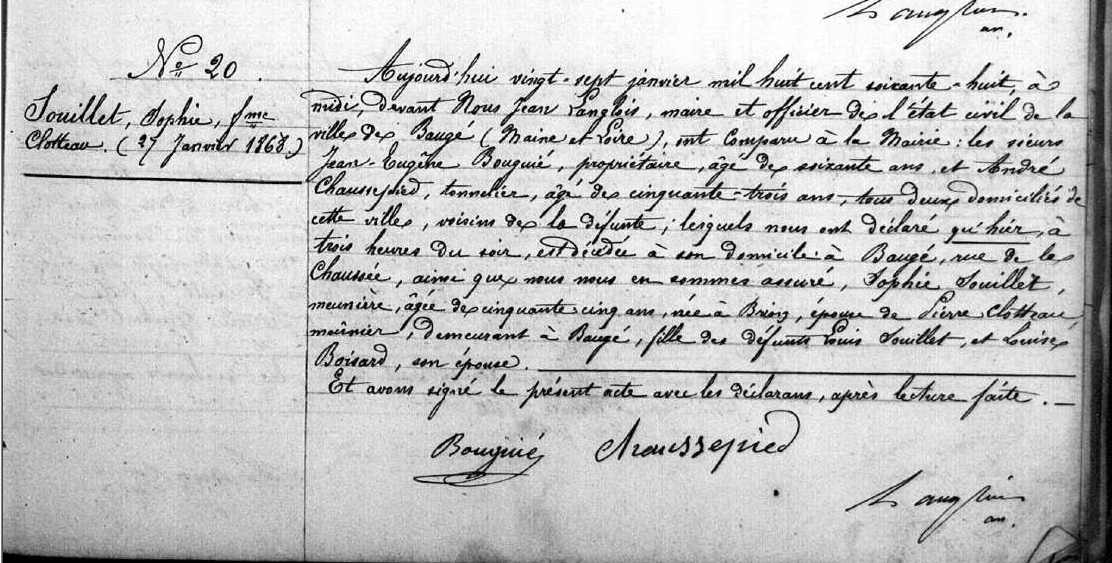 Langlois
N° 20.
Jouillet, Sophie, fme
Clotteau. (27 Janvier 1868.)
Aujourd'hui vingt-sept janvier mil huit cent soixante-huit, à
midi, devant Nous Jean Langlois, maire et officier de l'état civil de la
ville de Baugé (Maine et Loire), ont comparu à la Mairie: les sieurs
Jean-Eugène Bouguié, propriétaire, âgé de soixante ans, et André
Chaussepied, tonnelier, âgé de cinquante-trois ans, tous deux domiciliés de
cette ville, voisins de la défunte; lesquels nous ont déclaré qu'hier, à
trois heures du soir, est décédée à son domicile à Baugé, rue de la
Chaussée, ainsi que nous nous en sommes assuré, Sophie Jouillet,
meunière, âgée de cinquante cinq ans, née à Brion, épouse de Pierre Clotteau,
meûnier, demeurant à Baugé, fille des défunts Louis Jouillet, et Louise
Boisard, son épouse.
Et avons signé le présent acte avec les déclarans, après lecture faite.
Bouguié Chaussepied
Langlois